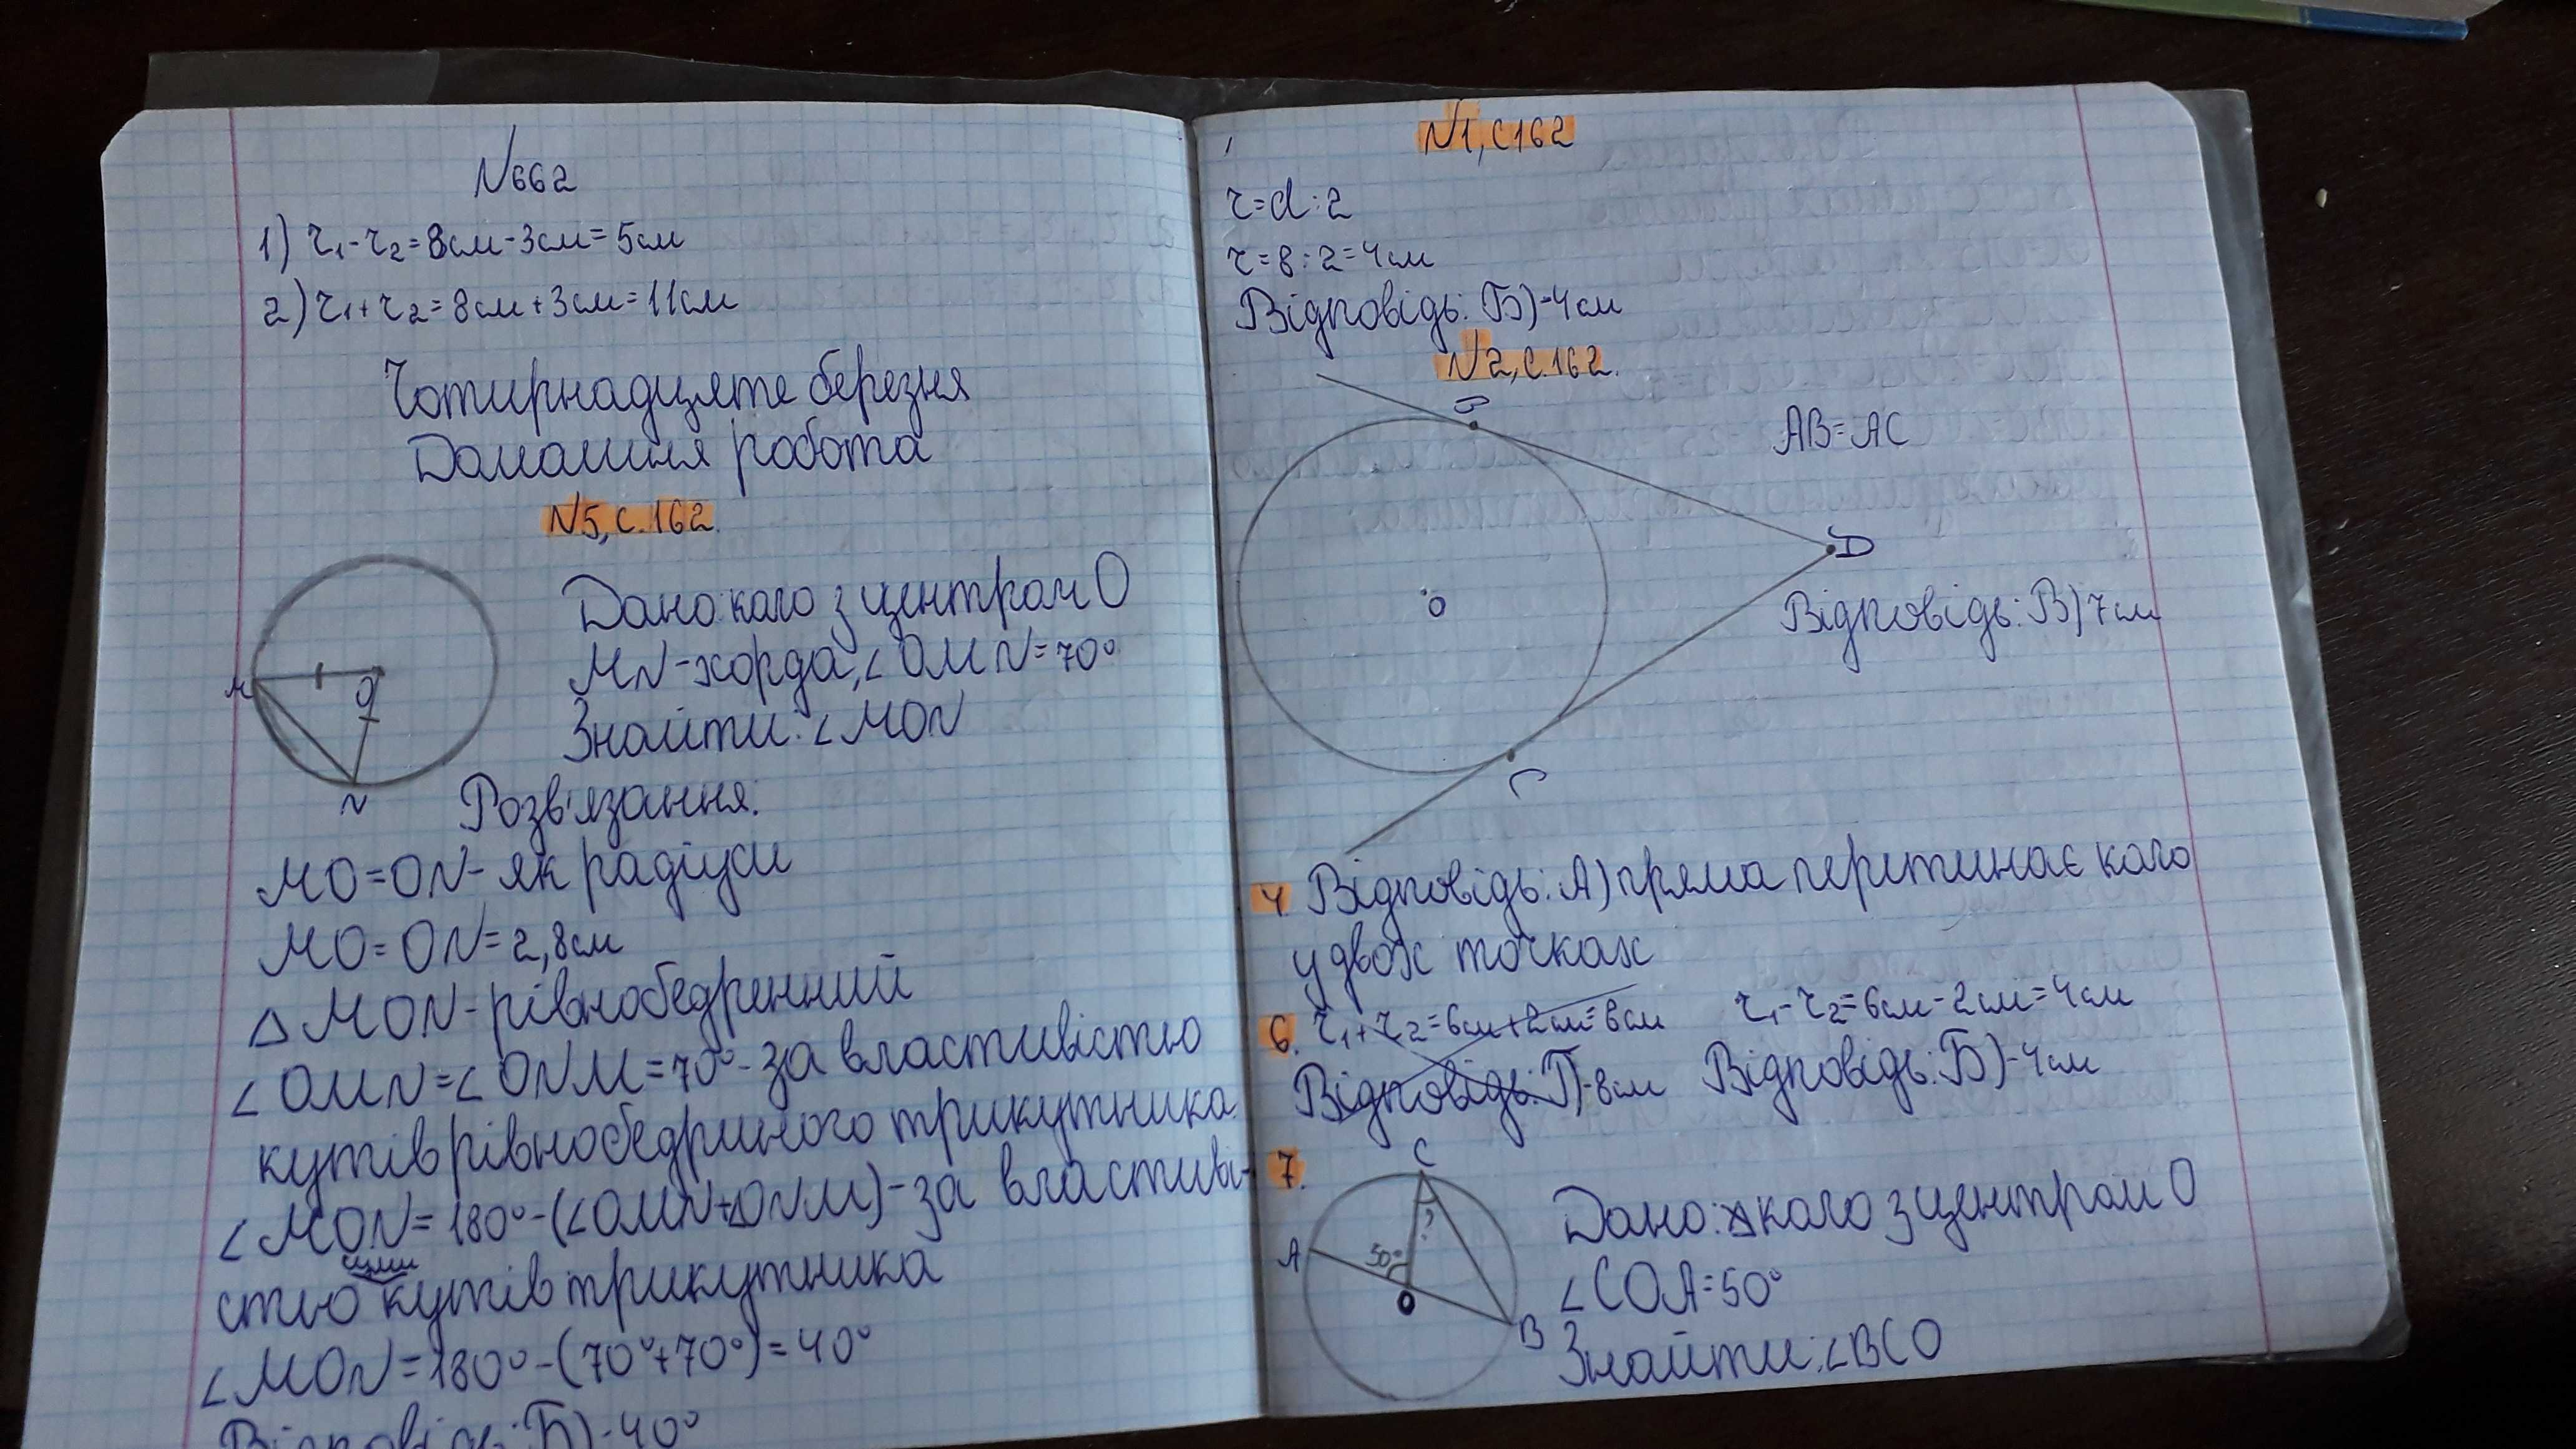 N662
1) r₁-r₂=8см-3см=5см
2) r₁+r₂=8см+3см=11см
Чотирнадцяте березня
Домашня робота
N5, с.162.
M
O
N
Дано: коло з центром О
MN-хорда, ∠OMN=70°
Знайти: ∠MON
Розв'язання:
MO=ON- як радіуси
MO=ON=2,8см
△MON-рівнобедренний
∠OMN=∠ONM=70°-за властивістю
кутів рівнобедриного трикутника.
∠MON=180°-(∠OMN+∠ONM)-за властиві-
стю кутів трикутника
∠MON=180°-(70°+70°)=40°
Відповідь: Б)-40°
N1, с162
r=d:2
r=8:2=4см
Відповідь: Б)-4см
N2, с.162.
B
AB=AC
D
O
Відповідь: В) 7см
C
4. Відповідь: А) пряма перетинає коло
у двох точках
6. r₁+r₂=6см+2см=8см r₁-r₂=6см-2см=4см
Відповідь: Г)-8см Відповідь: Б)-4см
7.
C
?
A
50°
O
B
Дано: коло з центром О
∠COA=50°
Знайти: ∠BCO